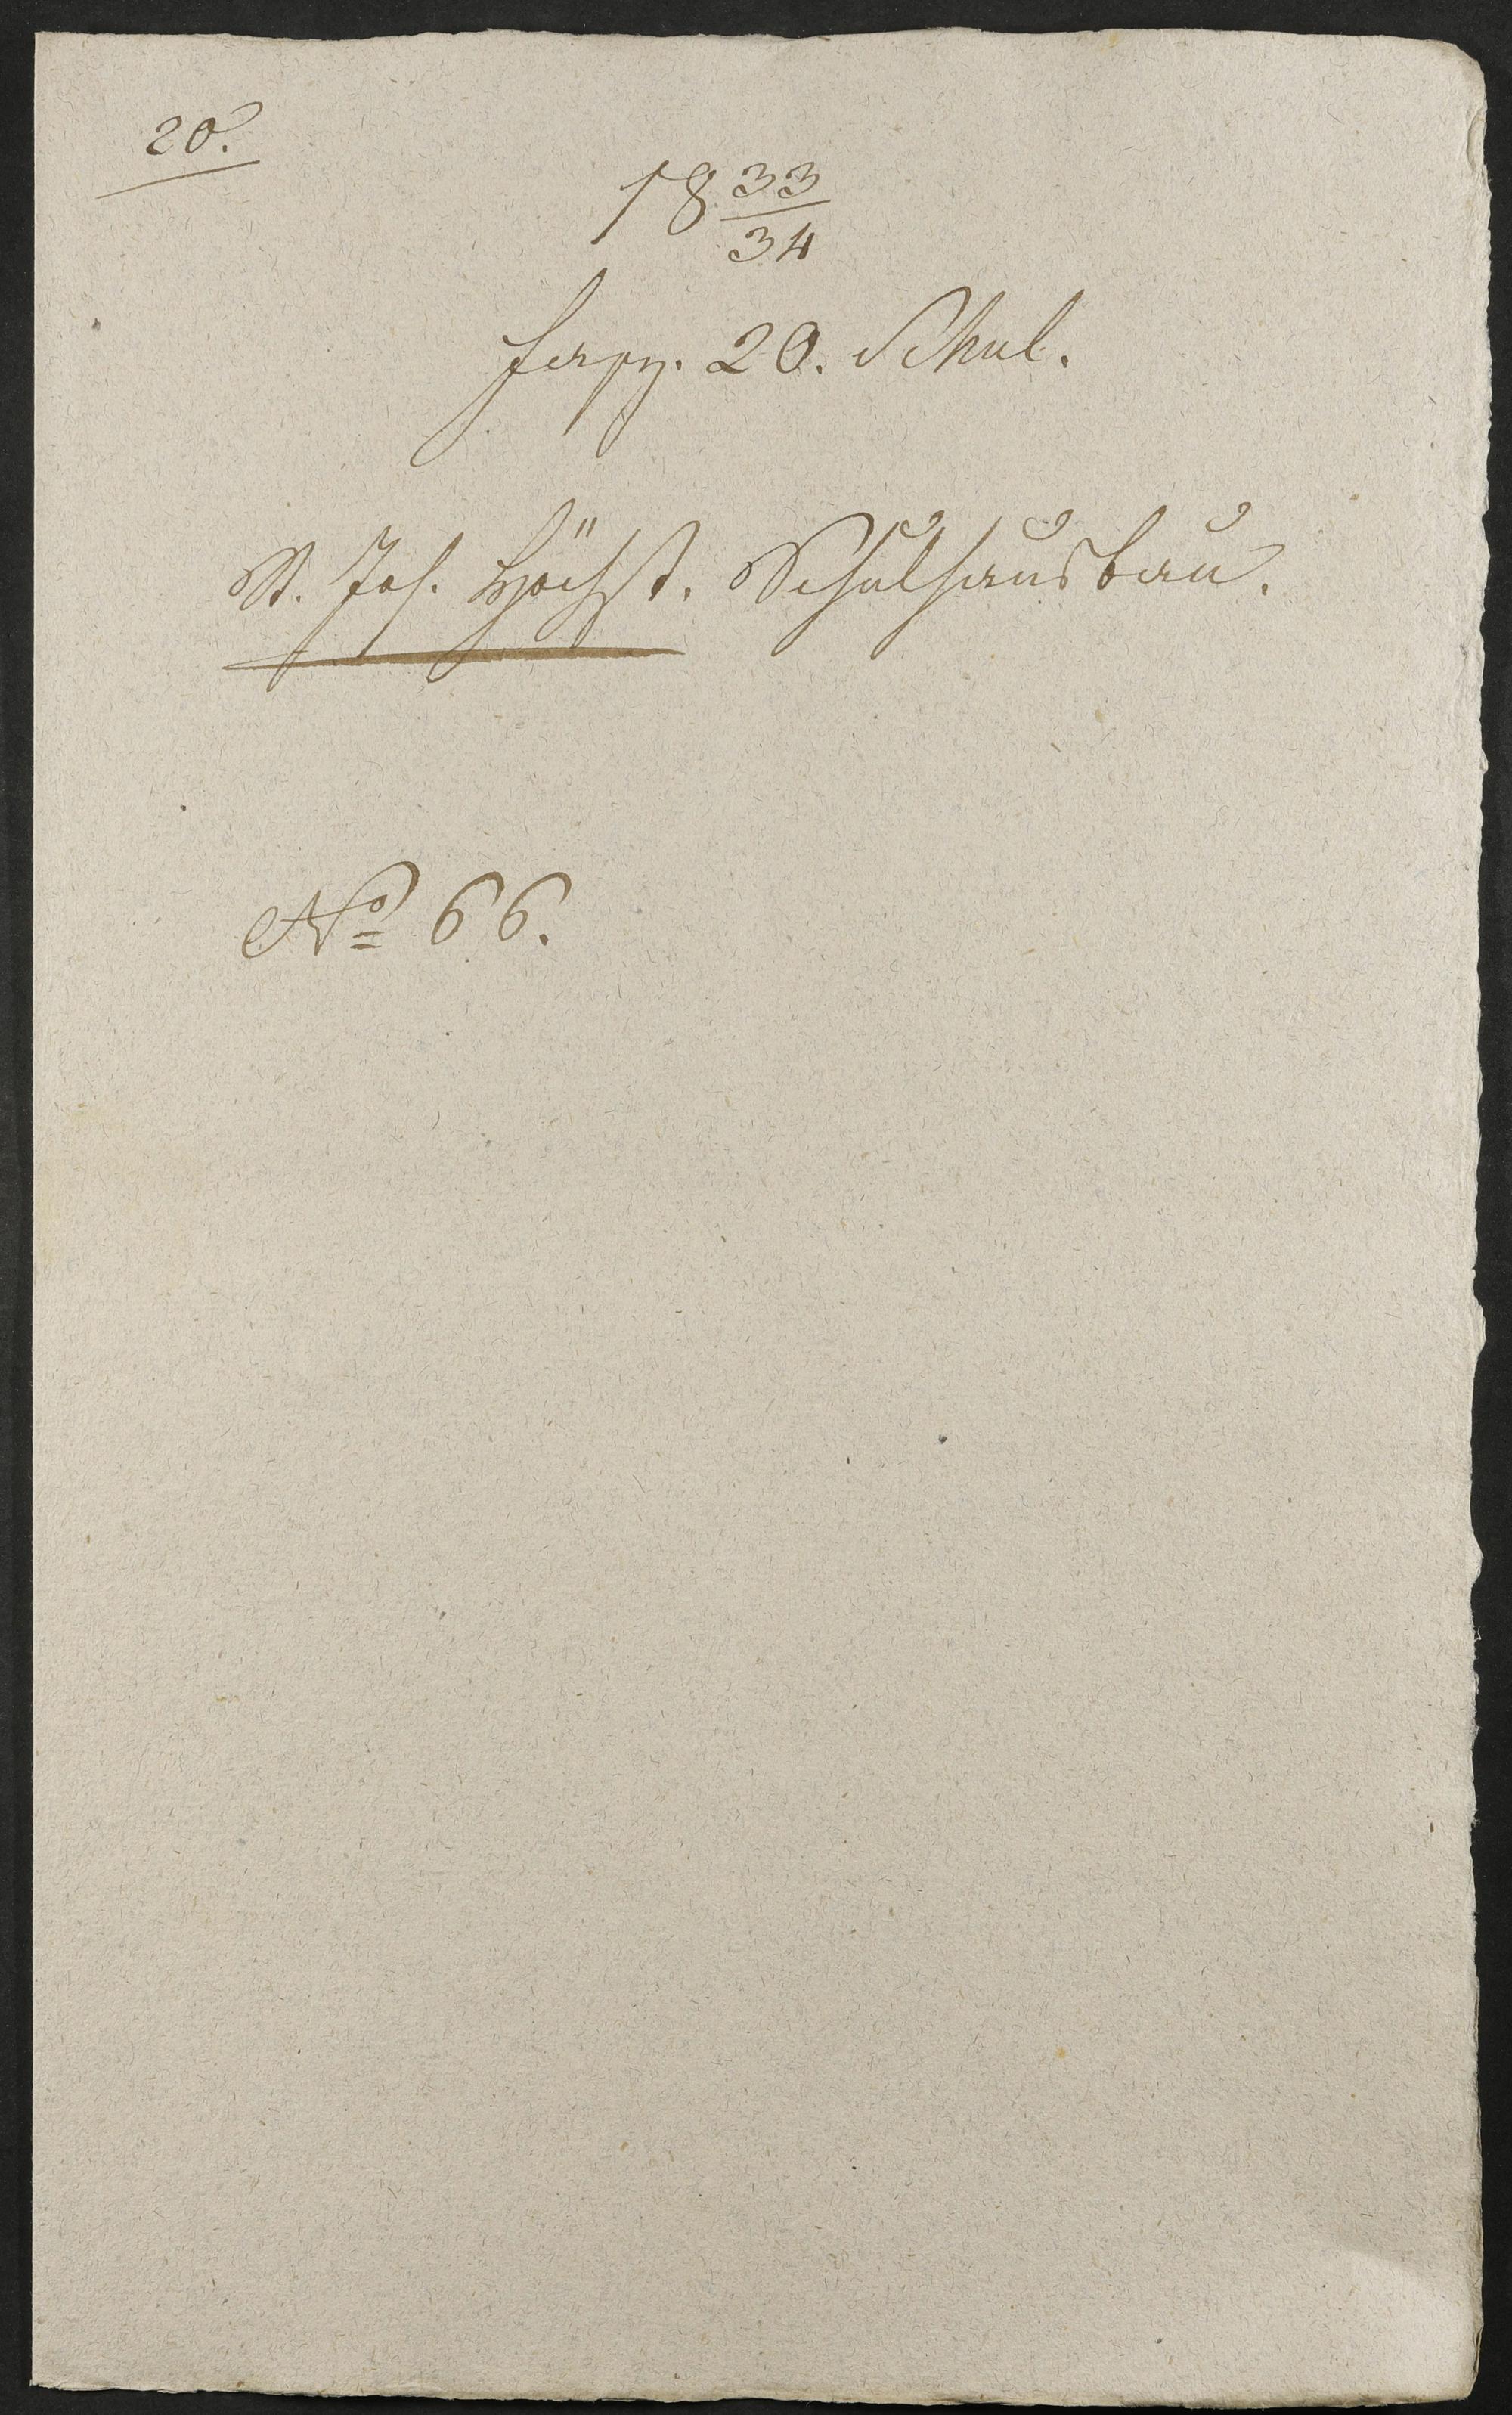 20.
18 33/34
Faszz. 20. Schul.
St. Joh. Höchst. Schulhausbau.
No 66.